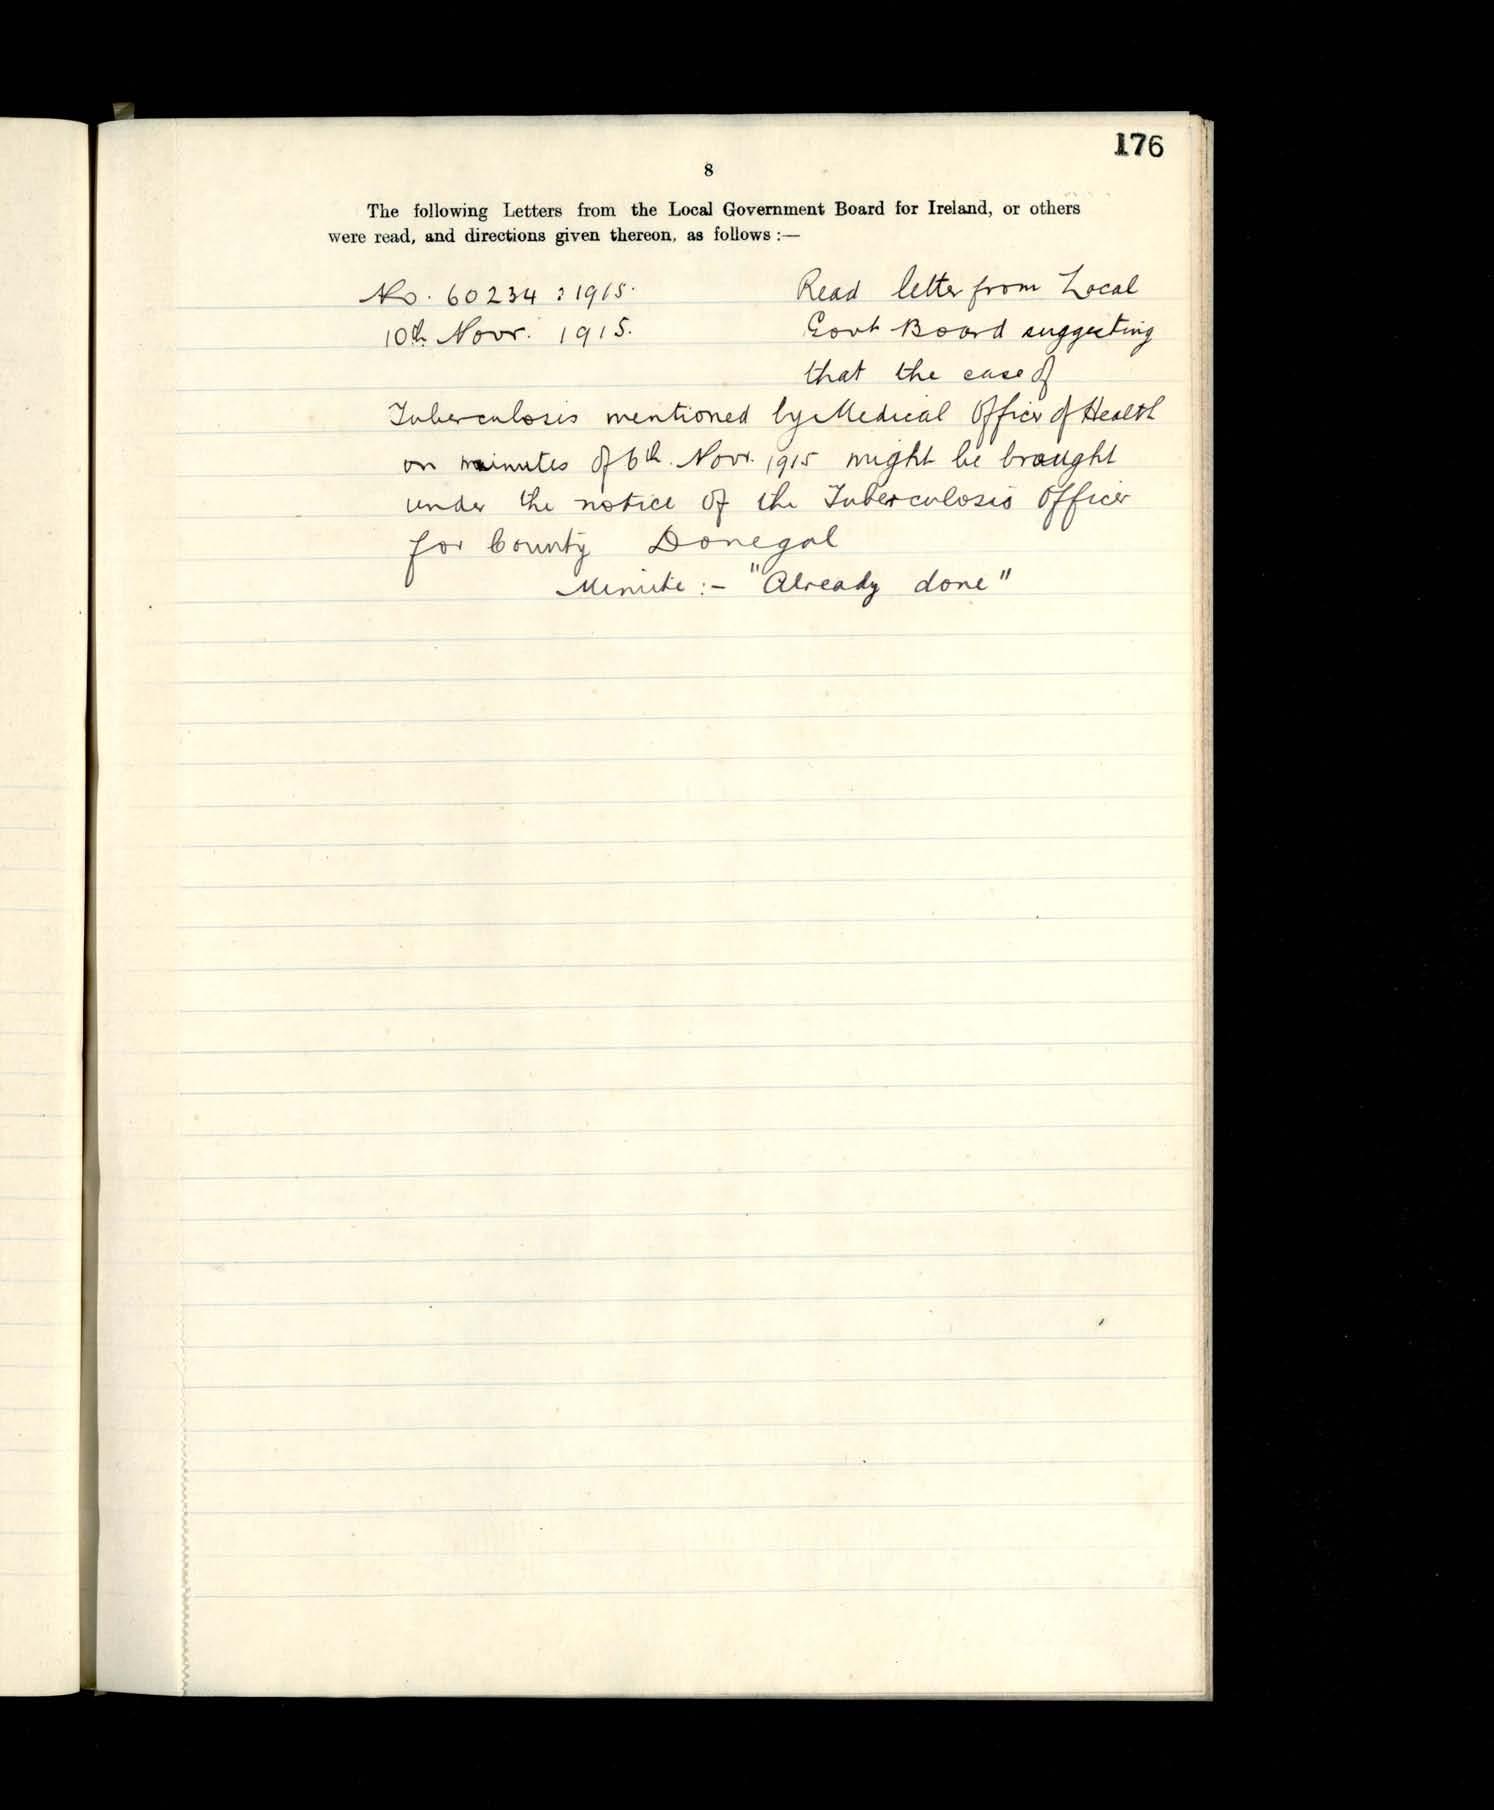 176
8
The following Letters from the Local Government Board for Ireland, or others
were read, and directions given thereon, as follows :—
No. 60234 : 1915. Read letter from Local
10th Novr. 1915. Govt Board suggesting
that the case of
Tuberculosis mentioned by Medical Officer of Health
on minutes of 6th. Novr. 1915 might be brought
under the notice of the Tuberculosis Officer
for County Donegal
Minute :- "Already done"